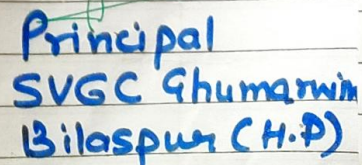 Principal
SVGC Ghumarwin
Bilaspur (H.P)